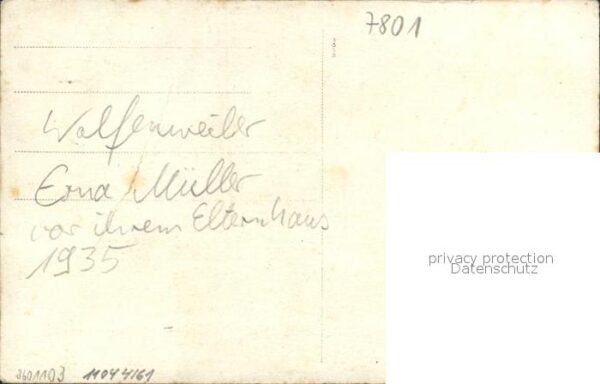 7801
Wolfenweiler
Erna Müller
vor ihrem Elternhaus
1935
privacy protection
Datenschutz
11044161